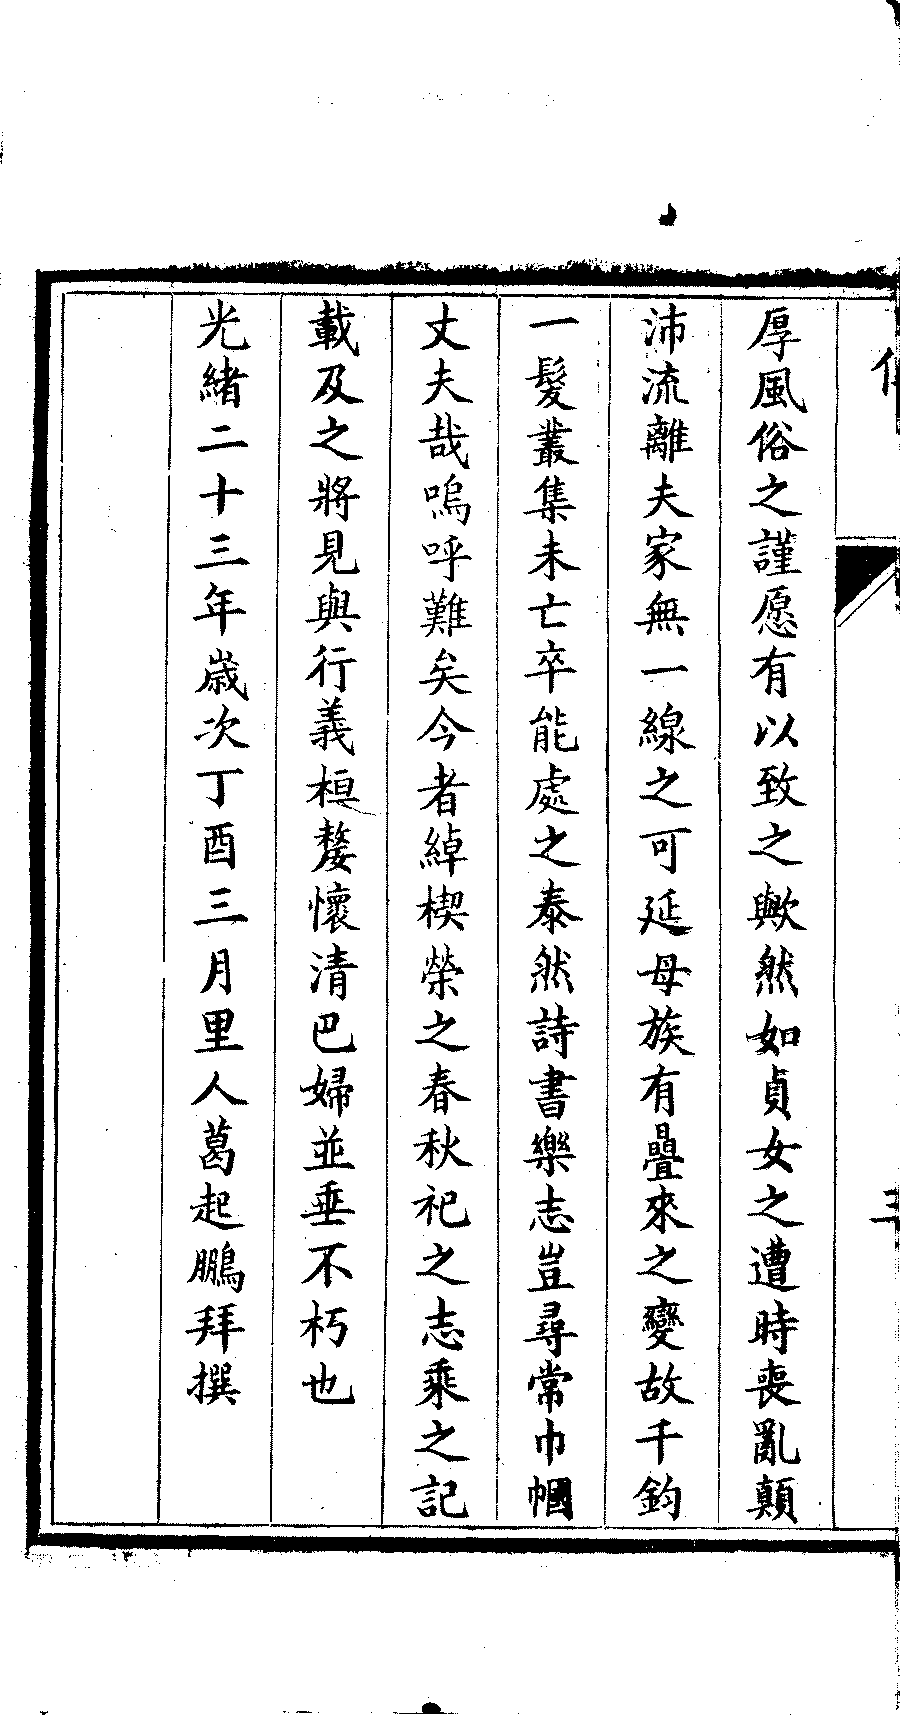 厚風俗之謹愿有以致之歟然如貞女之遭時喪亂顛
沛流離夫家無一線之可延母族有疊來之變故千鈞
一髮叢集未亡卒能處之泰然詩書樂志豈尋常巾幗
丈夫哉嗚呼難矣今者綽楔榮之春秋祀之志乘之記
載及之將見與行義桓嫠懷清巴婦並垂不朽也
光緒二十三年歲次丁酉三月里人葛起鵬拜撰